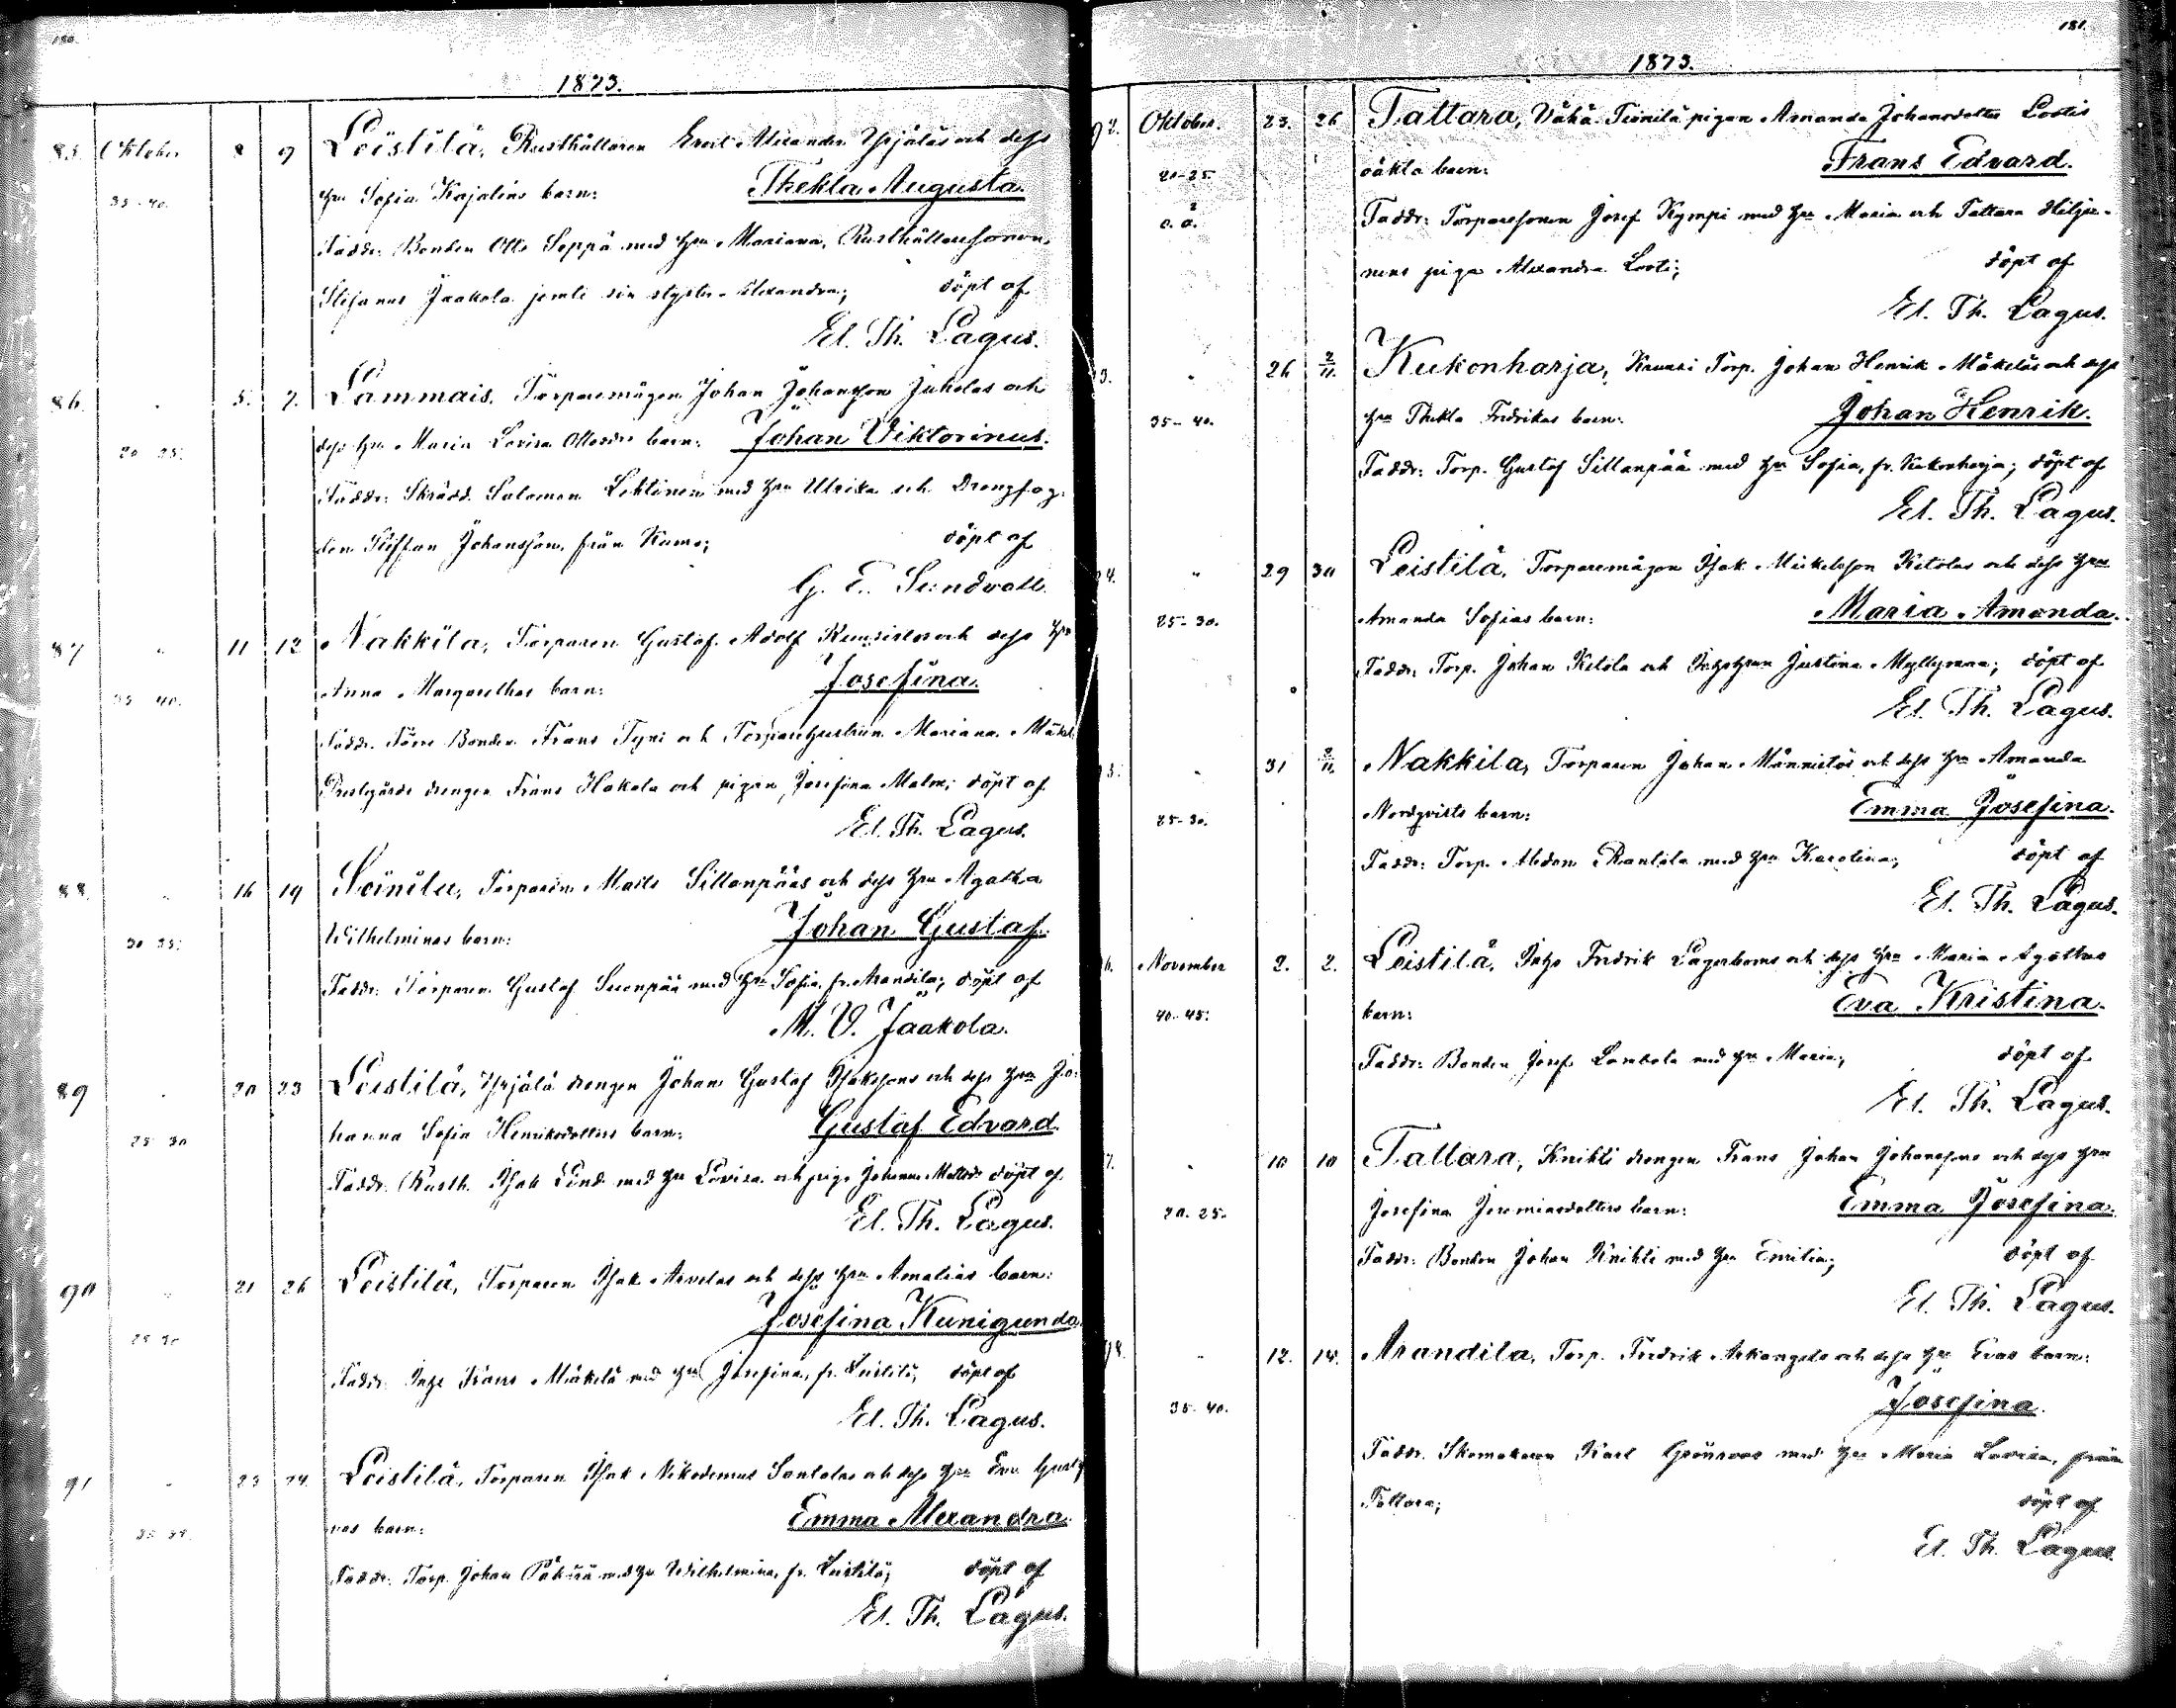 180.
1873.
85. Oktober 8 9 Leistilä, Rusthållaren Alexander Yrjäläs och dess
35-40. hru Sofia Kajalins barn: Thekla Augusta.
Faddr: Bonden Otto Seppä med hru Mariana, Rusthållaresonen
Stefanus Jaakola jemte sin syster Alexandra; döpt af
El. Th. Lagus.
86. " 5. 7. Lammais, Torparemågen Johan Johansson Juholas och
20-25. dess hru Maria Lovisa Ottosdrs barn: Johan Viktorinus.
Faddr: Skrädd. Salomon Lehtinen med hru Ulrika och Drengfog-
den Steffan Johansson, från Kumo; döpt af
G. E. Sundvall.
87 " 11 12 Nakkila, Torparen Gustaf Adolf Kuusistos och dess hru
35-40. Anna Margarethas barn: Josefina.
Faddr. Torre Bonden Frans Tyni och Torparehustrun Mariana
Prestgårds drengen Frans Hakola och pigan Josefina Malm; döpt af
El. Th. Lagus.
88. " 16 19 Soinila, Torparen Matts Sillanpääs och dess hru Agatha
30-35. Wilhelminas barn: Johan Gustaf.
Faddr: Torparen Gustaf Suonpää med hru Sofia, fr. Arandila; döpt af
M. V. Jaakola.
89 " 20 23 Leistilä, Yrjälä drengen Johan Gustaf Isakssons och dess hru Jo-
25-30 hanna Sofia Henriksdotters barn: Gustaf Edvard.
Faddr: Rusth. Isak Lund med hru Lovisa och piga Johanna döpt af
El. Th. Lagus.
90 " 21 26 Leistilä, Torparen Isak Arvelas och dess hru Amalias barn:
25-30 Josefina Kunigunda.
Faddr. Inhs Frans Mäkelä med hru Josefina, fr. Leistilä; döpt af
El. Th. Lagus.
91 " 23 24 Leistilä, Torparen Isak Nikodemus Santalas och dess hru Eva Gusta-
vas barn: Emma Alexandra.
Faddr: Torp. Johan med hru Wilhelmina, fr. Leistilä; döpt af
El. Th. Lagus.
181.
1873.
92. Oktober. 23. 26 Tattara, Vähä Tiinilä pigan Amanda Johansdotter Lostis
20-25. oäkta barn: Frans Edvard.
o. ä. Faddr: Torparesonen Josef Kympi med hru Maria och Tattara
piga Alexandra Losti; döpt af
El. Th. Lagus.
3. " 26 2/11. Kukonharja, Kruuni Torp. Johan Henrik Mäkeläs och dess
35-40. hru Thekla Fredrikas barn: Johan Henrik.
Faddr: Torp. Gustaf Sillanpää med hru Sofia, fr. Kukonharja; döpt af
El. Th. Lagus.
94. " 29 30 Leistilä, Torparemågen Isak Mickelsson Ketolas och dess hru
25-30. Amanda Sofias barn: Maria Amanda.
Faddr: Torp. Johan Ketola och Inhyshrun Justina Myllymaa; döpt af
El. Th. Lagus.
5. " 31 2/11. Nakkila, Torparen Johan Männistös och dess hru Amanda
25-30. Nordqvists barn: Emma Josefina.
Faddr: Torp. Rantala med hru Karolina; döpt af
El. Th. Lagus.
6. November 2. 2. Leistilä, Inhs Fredrik Lagerboms och dess hru Maria Agathas
40-45. barn: Eva Kristina.
Faddr: Bonden Josef med hru Maria; döpt af
El. Th. Lagus.
7. " 10 10 Tattara, Knihti drengen Frans Johan Johanssons och dess hru
20-25. Josefina Jeremiasdotters barn: Emma Josefina.
Faddr: Bonden Johan Knihti med hru Emilia; döpt af
El. Th. Lagus.
98. " 12. 14. Arandila, Torp. Fredrik Arkangels och dess hru Evas barn:
35-40. Josefina.
Faddr. Skomakaren Karl Grönroos med hru Maria Lovisa, från
Tattara; döpt af
El. Th. Lagus.